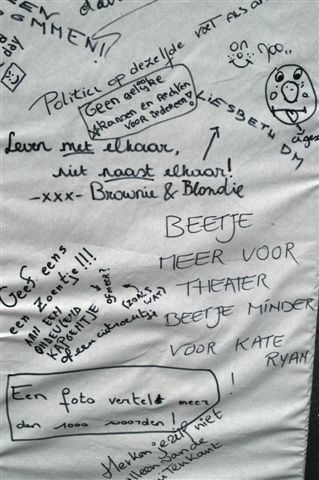 DAVE
GEMMEN!
day
Politici op dezelfde voet als
Geen gelijke
kansen en rechten
voor iedereen!
LIESBETH DM
Leven met elkaar,
niet naast elkaar!
-xxx- Brownie & Blondie
BEETJE
MEER VOOR
THEATER
BEETJE MINDER
VOOR KATE
RYAN
!
Geef eens
een Zoentje!!!
AAN EEN
ONDEUGEND
KAPOENTJE
(ZOALS WAT?)
of een citroentje
Een foto vertelt meer
dan 1000 woorden!
Herken je zijn niet
alleen aan de
buitenkant